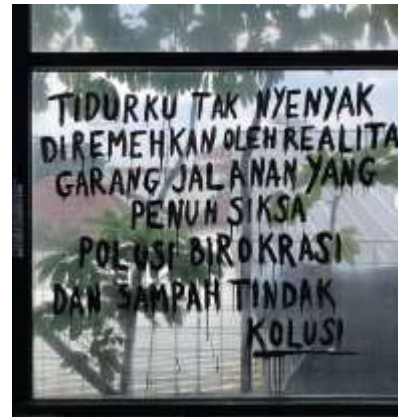 TIDURKU TAK NYENYAK
DIREMEHKAN OLEH REALITA
GARANG JALANAN YANG
PENUH SIKSA
POLUSI BIROKRASI
DAN SAMPAH TINDAK
KOLUSI